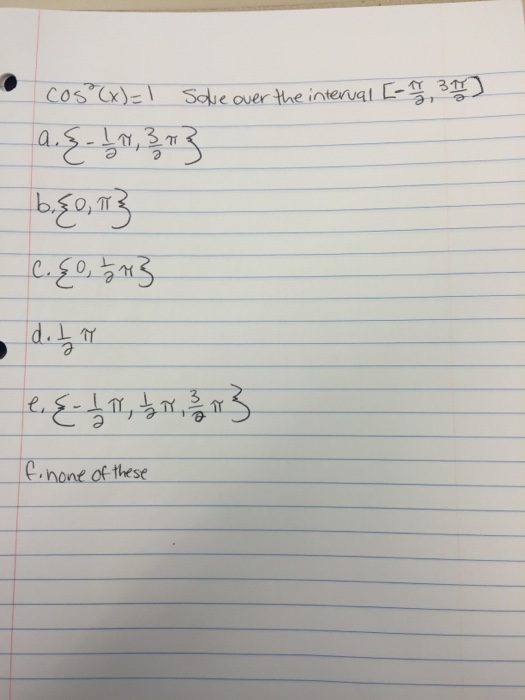 cos²(x)=1 Solve over the interval [-π/2, 3π/2]
a. {-1/2 π, 3/2 π}
b. {0, π}
c. {0, 1/2 π}
d. 1/2 π
e. {-1/2 π, 1/2 π, 3/2 π}
f. none of these